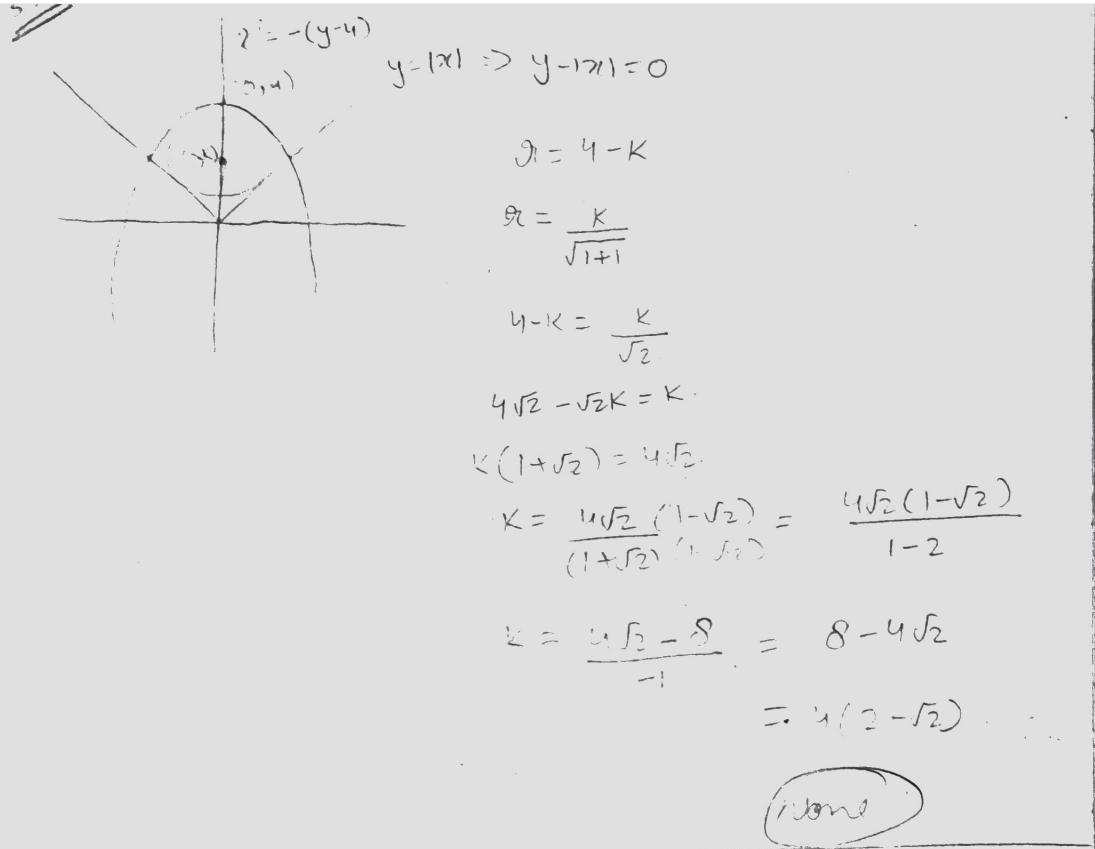 x² = -(y-4)
y=|x| => y-|x| = 0
,4)
r = 4 - K
r = K/√(1+1)
4-K = K/√2
4√2 - √2K = K.
K(1+√2) = 4√2.
K = 4√2 (1-√2)/(1+√2) (1-√2) = 4√2(1-√2)/1-2
K = 4√2 - 8/-1 = 8 - 4√2
= 4(2-√2)
None